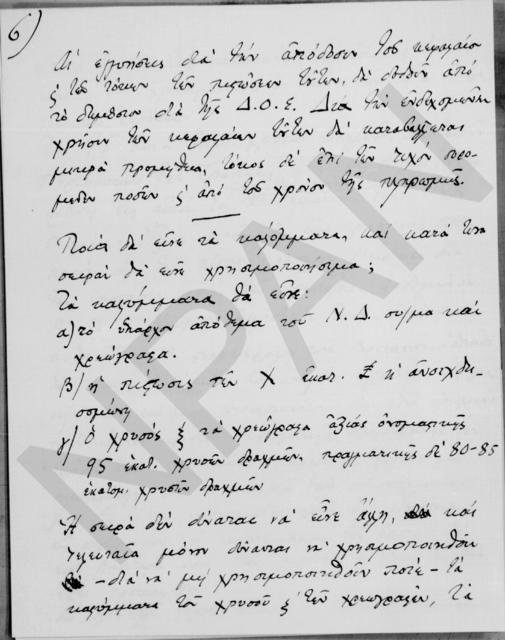 6)
Αἱ ἐγγυήσεις διὰ τὴν ἀπόδοσιν τοῦ κεφαλαίου
ς τῶν τόκων τῶν πιστώσεων τούτων, θὰ δοθοῦν ἀπὸ
τὸ δημόσιον διὰ τῆς Δ.Ο.Ε. Διὰ τὴν ἐνδεχομένην
χρῆσιν τῶν κεφαλαίων τούτων θὰ καταβάλλεται
μικρὰ προμήθεια, τόκος δὲ ἐπὶ τῶν τυχὸν
ποσῶν ς ἀπὸ τοῦ χρόνου τῆς πληρωμῆς.
Ποῖα θὰ εἶνε τὰ καλύμματα, καὶ κατὰ τίνα
σειρὰν θὰ εἶνε χρησιμοποιήσιμα;
Τὰ καλύμματα θὰ εἶνε:
α) τὸ ὑπάρχον ἀπόθεμα τοῦ Ν.Δ. συ/μα καὶ
χρεώγραφα.
β) ἡ πίστωσις τῶν Χ ἑκατ. £ ἡ ἀνοιχθη-
σομένη
γ) Ὁ χρυσὸς ς τὰ χρεώγραφα ἀξίας ὀνομαστικῆς
95 ἑκατ. χρυσῶν δραχμῶν, πραγματικῆς δὲ 80-85
ἑκατομ. χρυσῶν δραχμῶν
Ἡ σειρὰ δὲν δύναται νὰ εἶνε ἄλλη, καὶ
τελευταῖα μόνον δύναται νὰ χρησιμοποιηθοῦν
– διὰ νὰ μὴ χρησιμοποιηθοῦν ποτὲ – τὰ
καλύμματα τοῦ χρυσοῦ ς τῶν χρεωγράφων, τὰ
NPAN